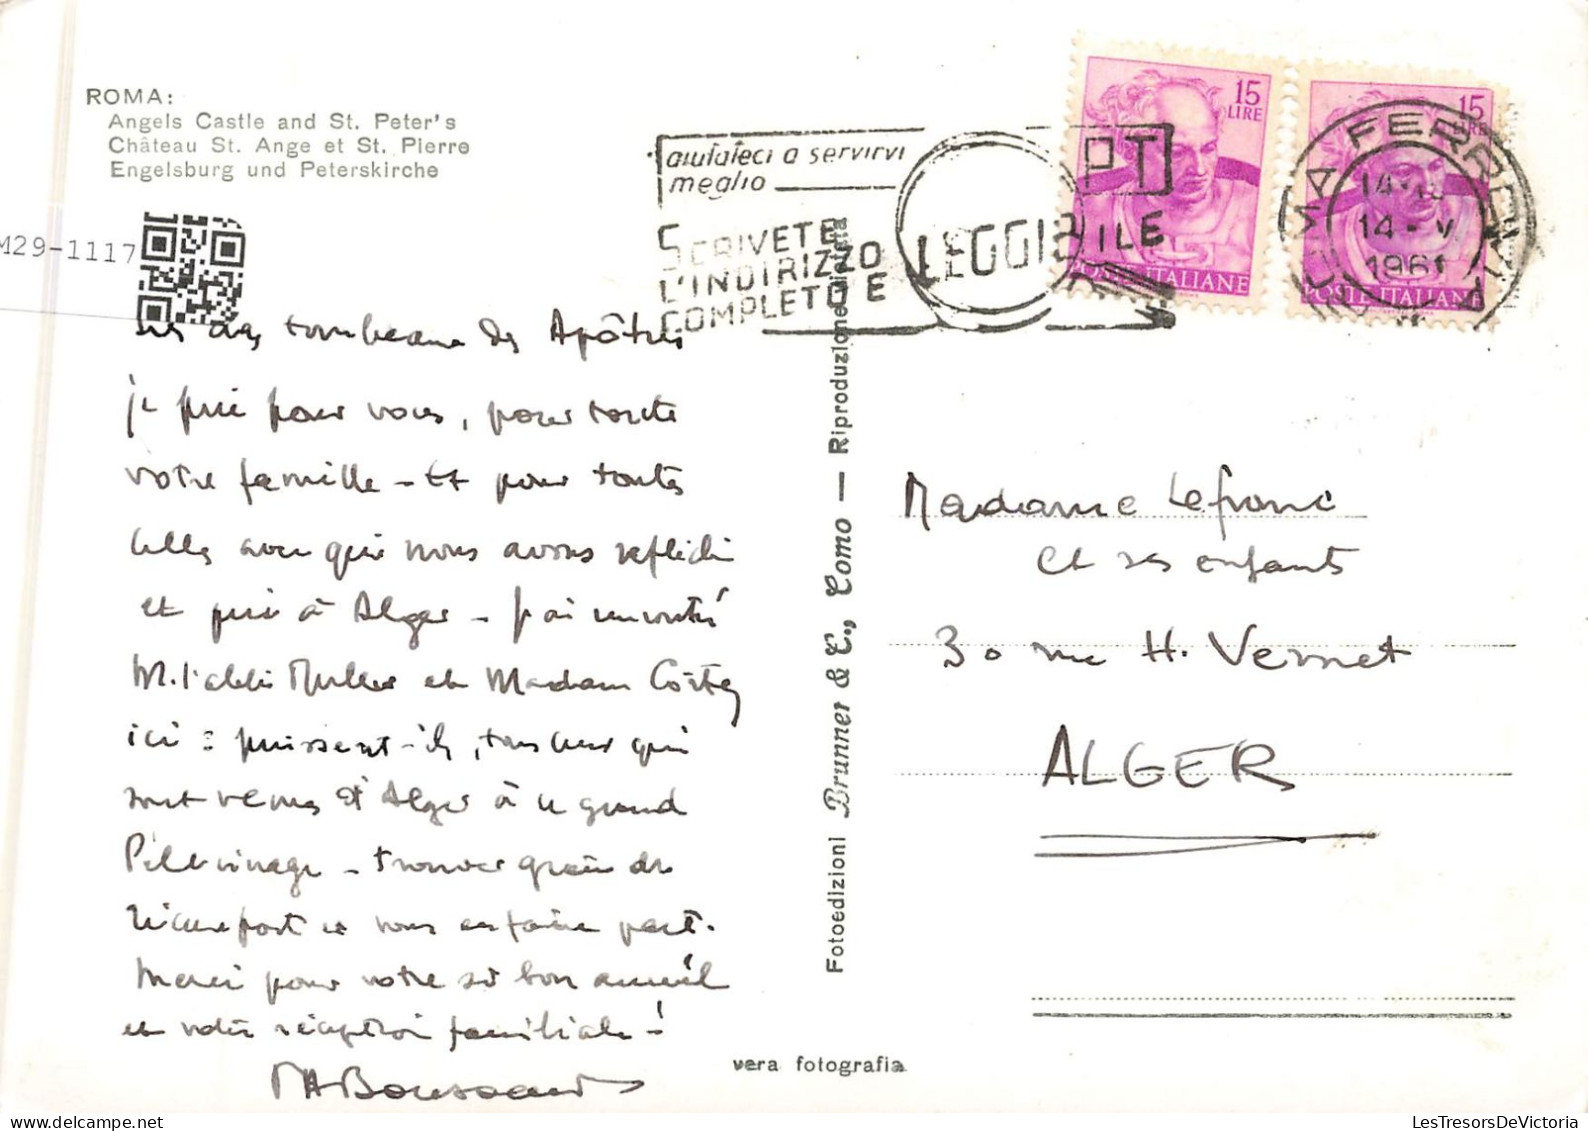 ROMA:
Angels Castle and St. Peter's
Château St. Ange et St. Pierre
Engelsburg und Peterskirche
M29-1117
aiutateci a servirvi
meglio
PT
SCRIVETE
L'INDIRIZZO
COMPLETO E LEGGIBILE
15
LIRE
POSTE ITALIANE
15
LIRE
POSTE ITALIANE
ROMA FERROVIA
14-V
1961
tombeaux des Apôtres
je prie pour vous, pour toute
votre famille - Et pour toutes
celles avec qui nous avons réfléchi
et prié à Alger - J'ai rencontré
M. l'abbé Muller et Madame
ici : puissent-ils, tous ceux qui
sont venus d'Alger à ce grand
Pèlerinage - trouver grain de
et vous en faire part.
Merci pour votre si bon accueil
et votre réception familiale !
Madame Lefranc
et ses enfants
30 rue H. Vernet
ALGER
Fotoedizioni Brunner & C., Como — Riproduzione vietata
vera fotografia
LesTresorsDeVictoria